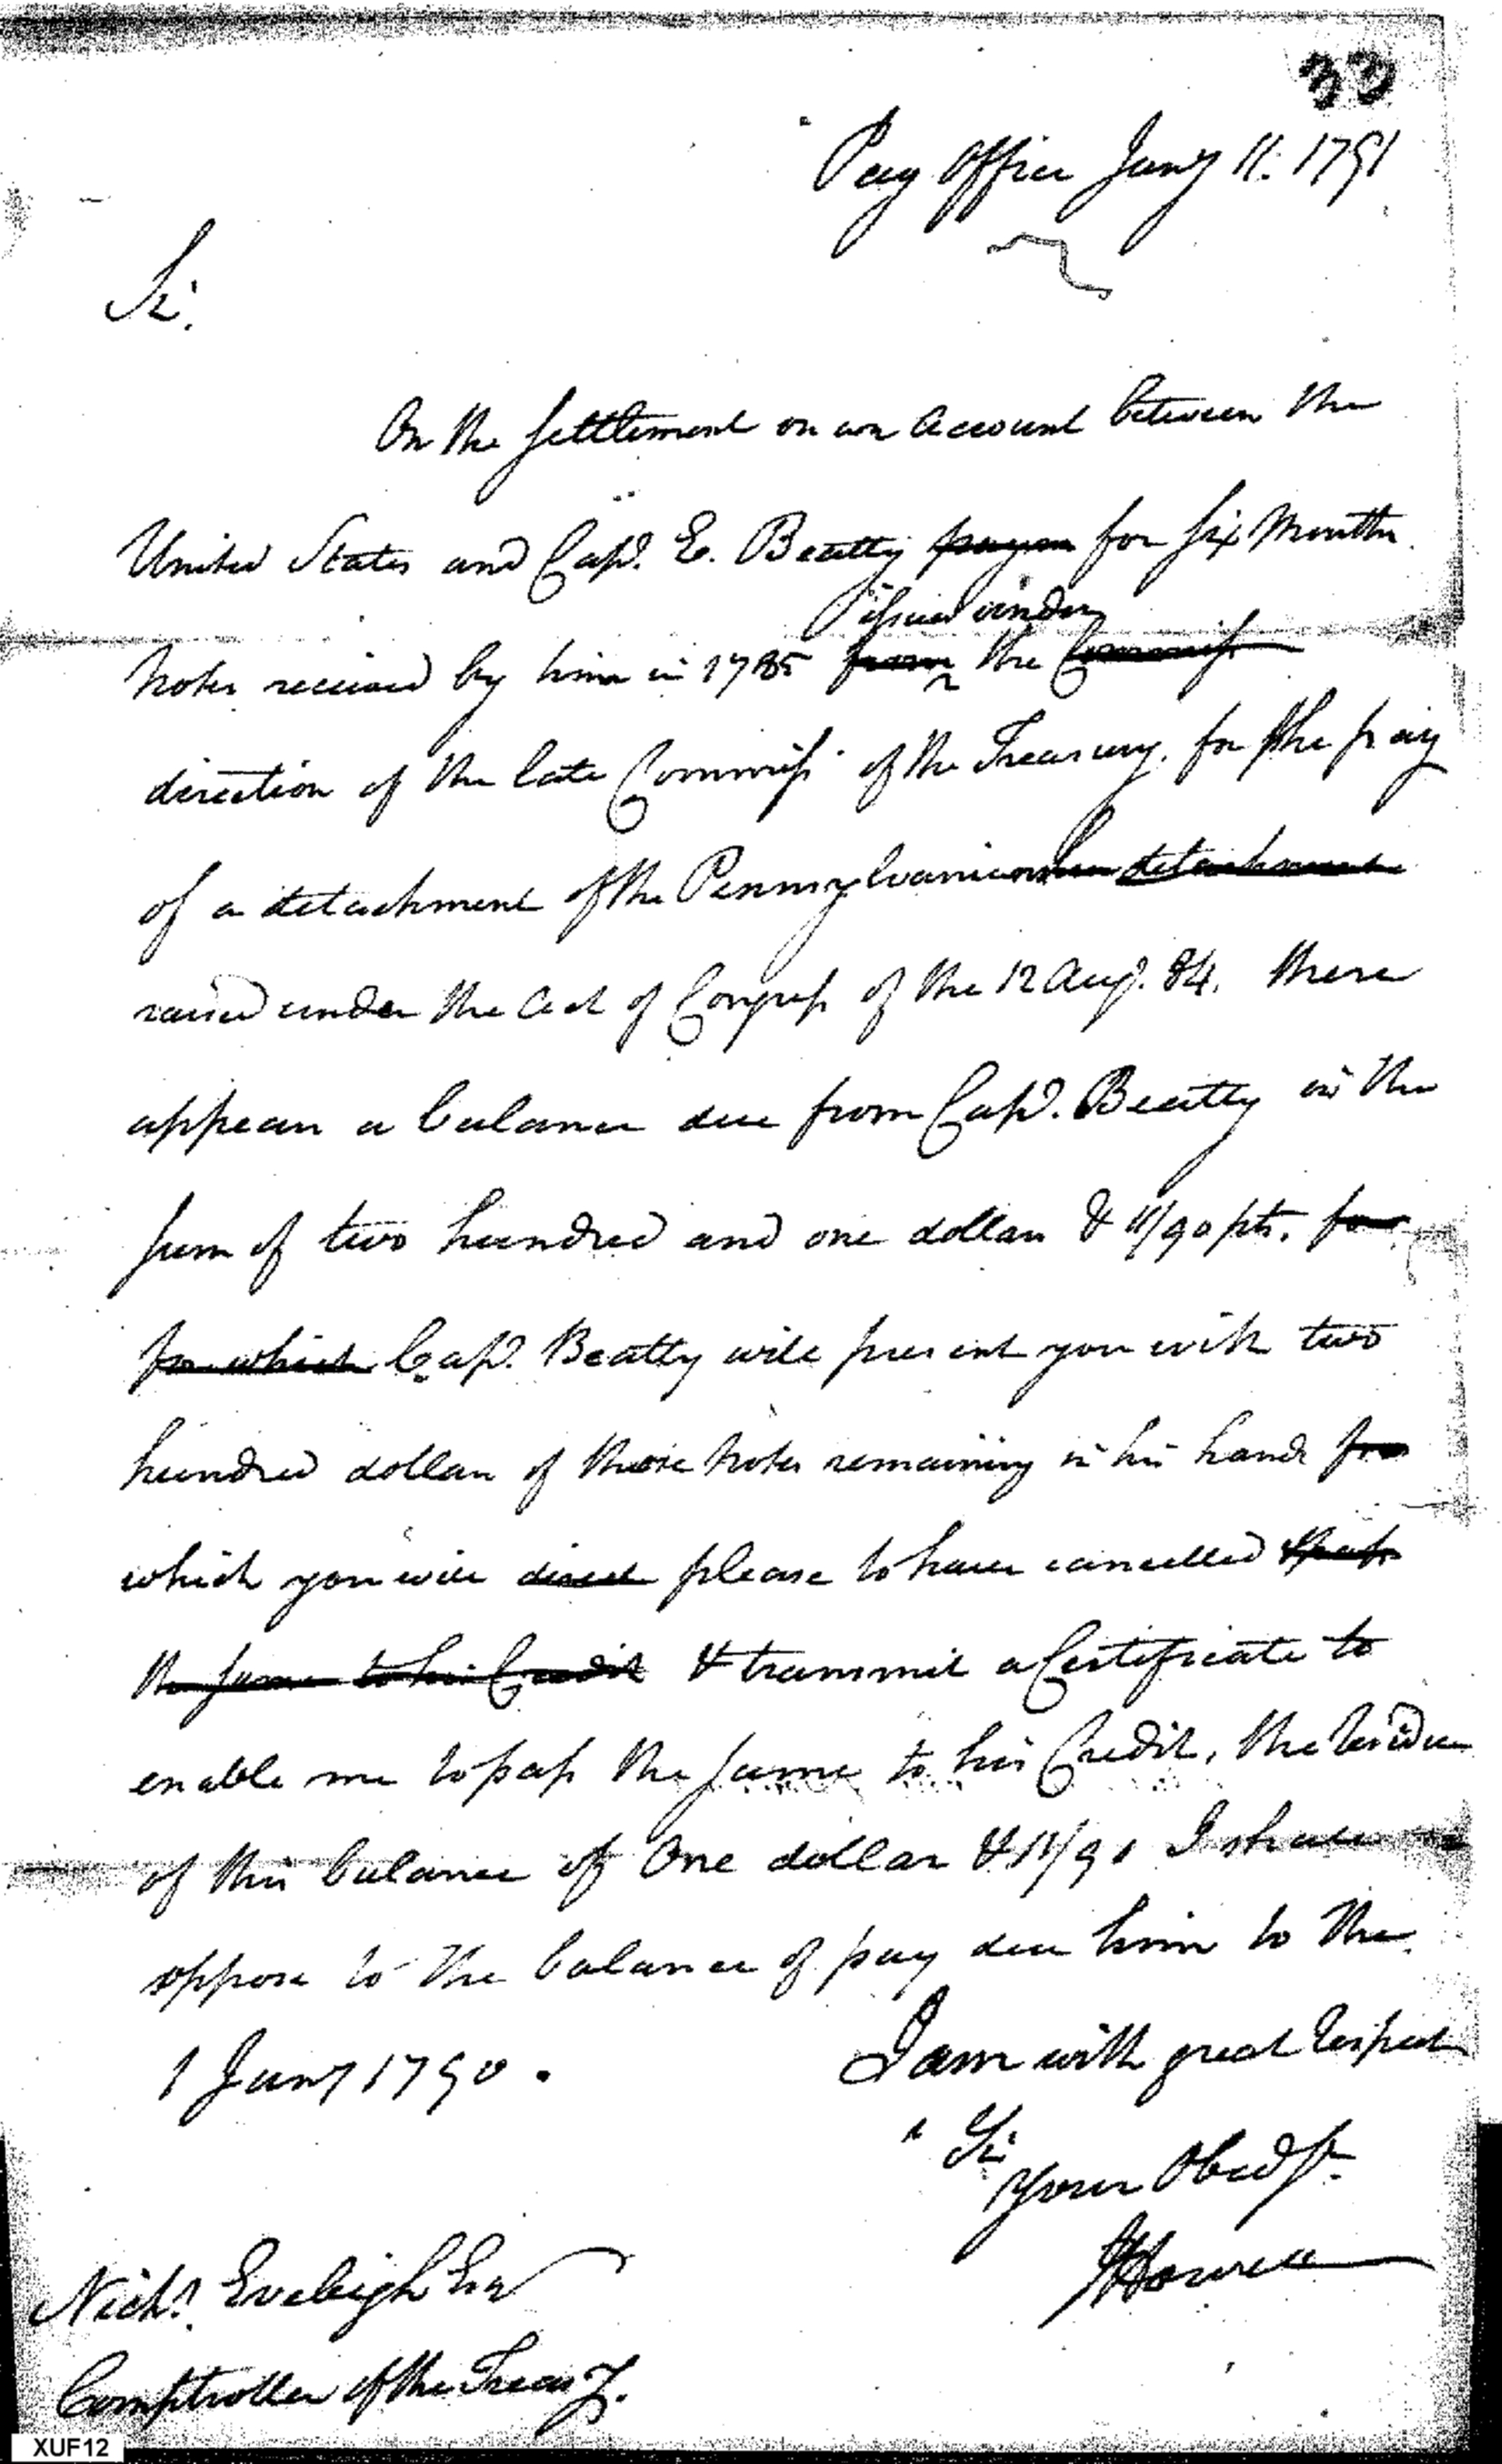 33
Pay Office Jany 11. 1791
Sir.
On the settlement on an Account between the
United States and Capt. E. Beatty for six Months
issued under
Notes received by him in 1785 from the Commiss
direction of the late Commiss of the Treasury, for the pay
of a detachment of the Pennsylvanian detachment
raised under the Act of Congress of the 12 Augt. 84. there
appears a balance due from Capt. Beatty in the
sum of two hundred and one dollars & 11/90 pts. for
for which Capt. Beatty will present you with two
hundred dollars of those Notes remaining in his hands for
which you will direct please to have cancelled & pass
the same to his Credit & transmit a Certificate to
enable me to pass the same to his Credit, the residue
of this balance of One dollar & 11/90 I shall
oppose to the balance of pay due him to the
1 Jany 1790.
I am with great respect
Sir
Your Obed St.
JHowell
Nichs. Eveleigh Esqr
Comptroller of the Treasy.
XUF12